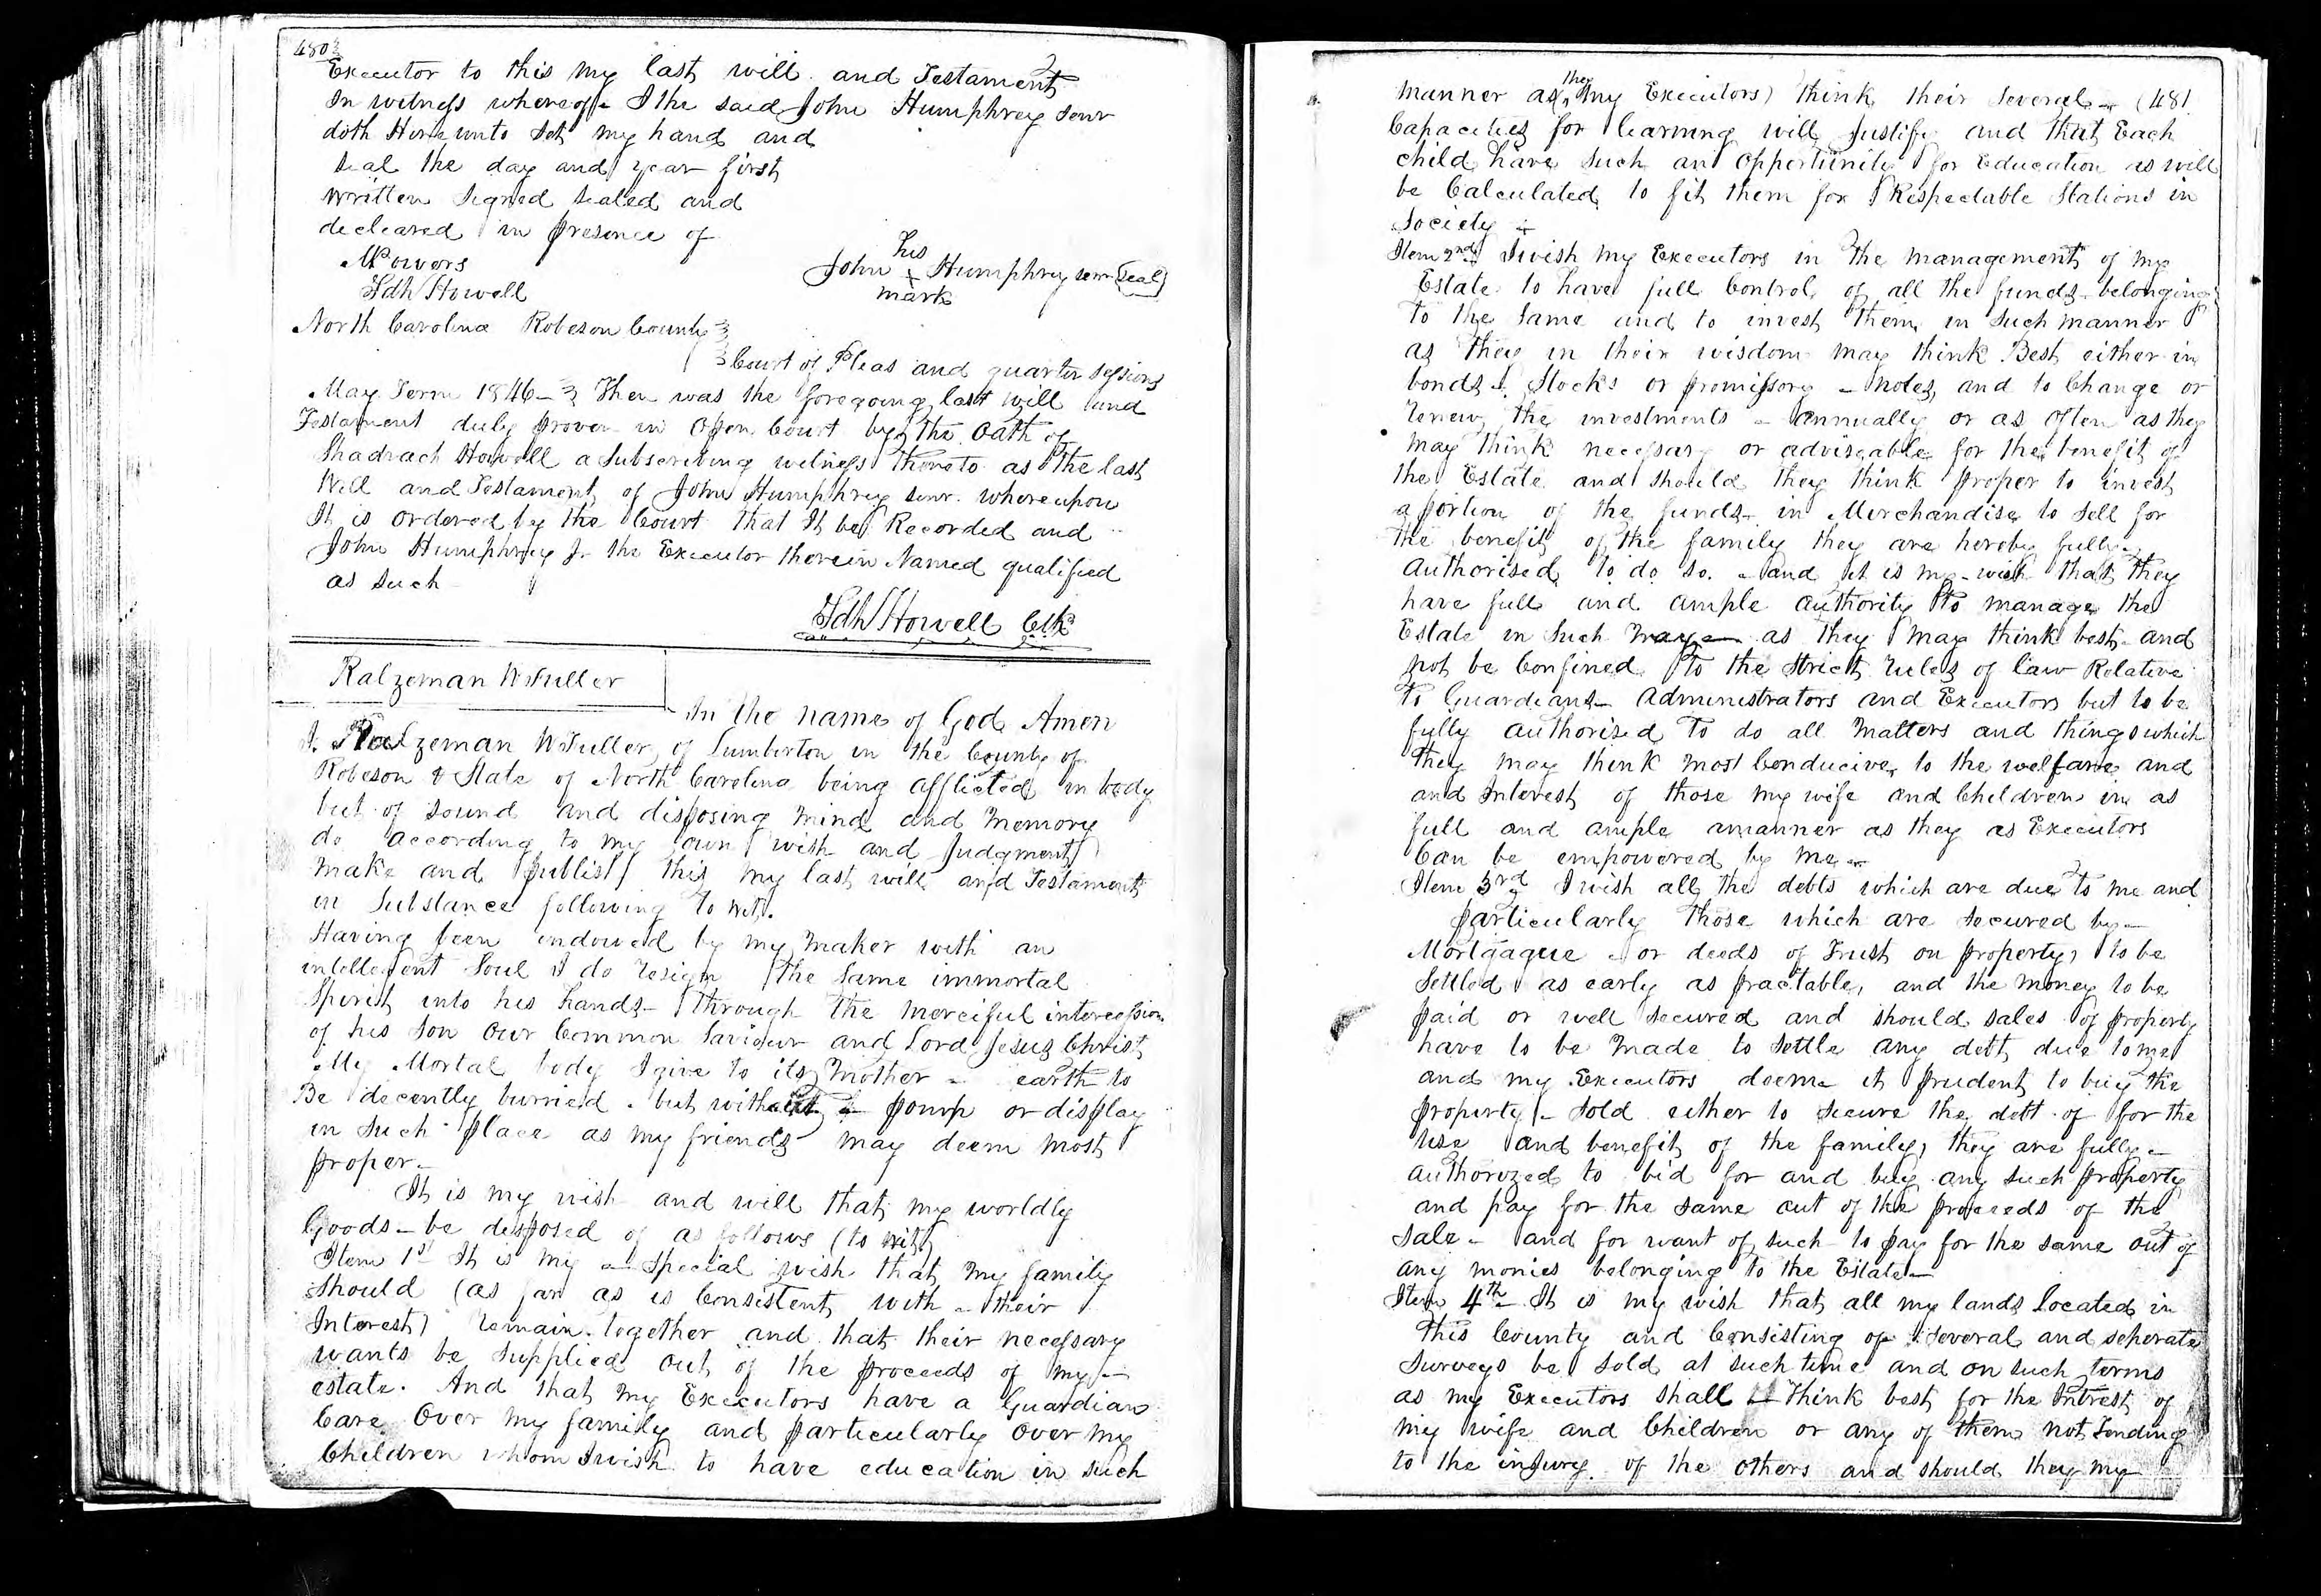 480
Executor to this my last will and Testament
In witness whereof I the said John Humphrey senr
doth Hereunto set my hand and
seal the day and year first
written signed sealed and
decleared in presence of
Powers
Sdh Howell
his
John x Humphrey senr (seal)
mark
North Carolina Robeson County
Court of Pleas and quarter sessions
May Term 1846 - Then was the foregoing last will and
Testament duly proven in Open Court by the Oath of
Shadrach Howell a subscribing witness thereto as the last
Will and Testament of John Humphrey senr. whereupon
It is ordered by the Court that It be Recorded and
John Humphrey Jr the Executor therein Named qualified
as such
Sdh Howell Clk
Ralzeman W Fuller
In the name of God Amen
I. Ralzeman W Fuller, of Lumberton in the County of
Robeson & State of North Carolina being afflicted in body
but of sound and disposing mind and memory
do according to my own wish and Judgment
make and publish this my last will and Testament
in Substance following to wit.
Having been endowed by my maker with an
intellegent Soul I do resign the same immortal
Spirit into his hands - through the merciful intercession
of his son our Common Saviour and Lord Jesus Christ
My Mortal body I give to its Mother - earth to
Be decently burried. but without pomp or display
in such place as my friends may deem most
proper -
It is my wish and will that my worldly
Goods - be disposed of as follows (to wit)
Item 1st It is my - special wish that my family
should (as far as is Consistent with - their
Interest) remain together and that their necessary
wants be supplied out of the proceeds of my -
estate. And that my Executors have a Guardian
Care Over my family and particularly over my
Children whom I wish to have education in such
manner as they my Executors) think their several - (481
Capacities for learning will Justify and that Each
child have such an opportunity for Education as will
be Calculated to fit them for Respectable Stations in
Society -
Item 2nd I wish my Executors in the management of my
Estate to have full Control of all the funds belonging
to the same and to invest them in such manner
as they in their wisdom may think Best either in
bonds. Stocks or promissory - notes, and to Change or
renew the investments - annually or as often as they
may think necessary or adviseable for the benefit of
the Estate and should they think proper to invest
a portion of the funds in Merchandise to sell for
the benefit of the family they are hereby fully -
Authorised to do so. - and it is my - wish that they
have full and ample authority to manage the
Estate in such way - as they may think best and
not be Confined to the strict rules of law Relative
to Guardians - administrators and Executors but to be
fully authorised to do all matters and things which
they may think most Conducive to the welfare and
and Interest of those my wife and Children in as
full and ample amanner as they as Executors
Can be empowered by me -
Item 3rd I wish all the debts which are due to me and
particularly those which are secured by -
Mortgague - or deeds of Trust on property, to be
settled as early as practable, and the money to be
paid or well secured and should sales of property
have to be made to settle any debt due to me
and my Executors deem it prudent to buy the
property - sold either to secure the debt of for the
use and benefit of the family, they are fully -
authorized to bid for and buy any such property
and pay for the same out of the proceeds of the
sale - and for want of such - to pay for the same out of
any monies belonging to the Estate -
Item 4th - It is my wish that all my lands located in
this County and Consisting of several and seperate
surveys be sold at such time and on such terms
as my Executors shall think best for the Intrest of
my wife and Children or any of them not Tending
to the injury of the others and should they my